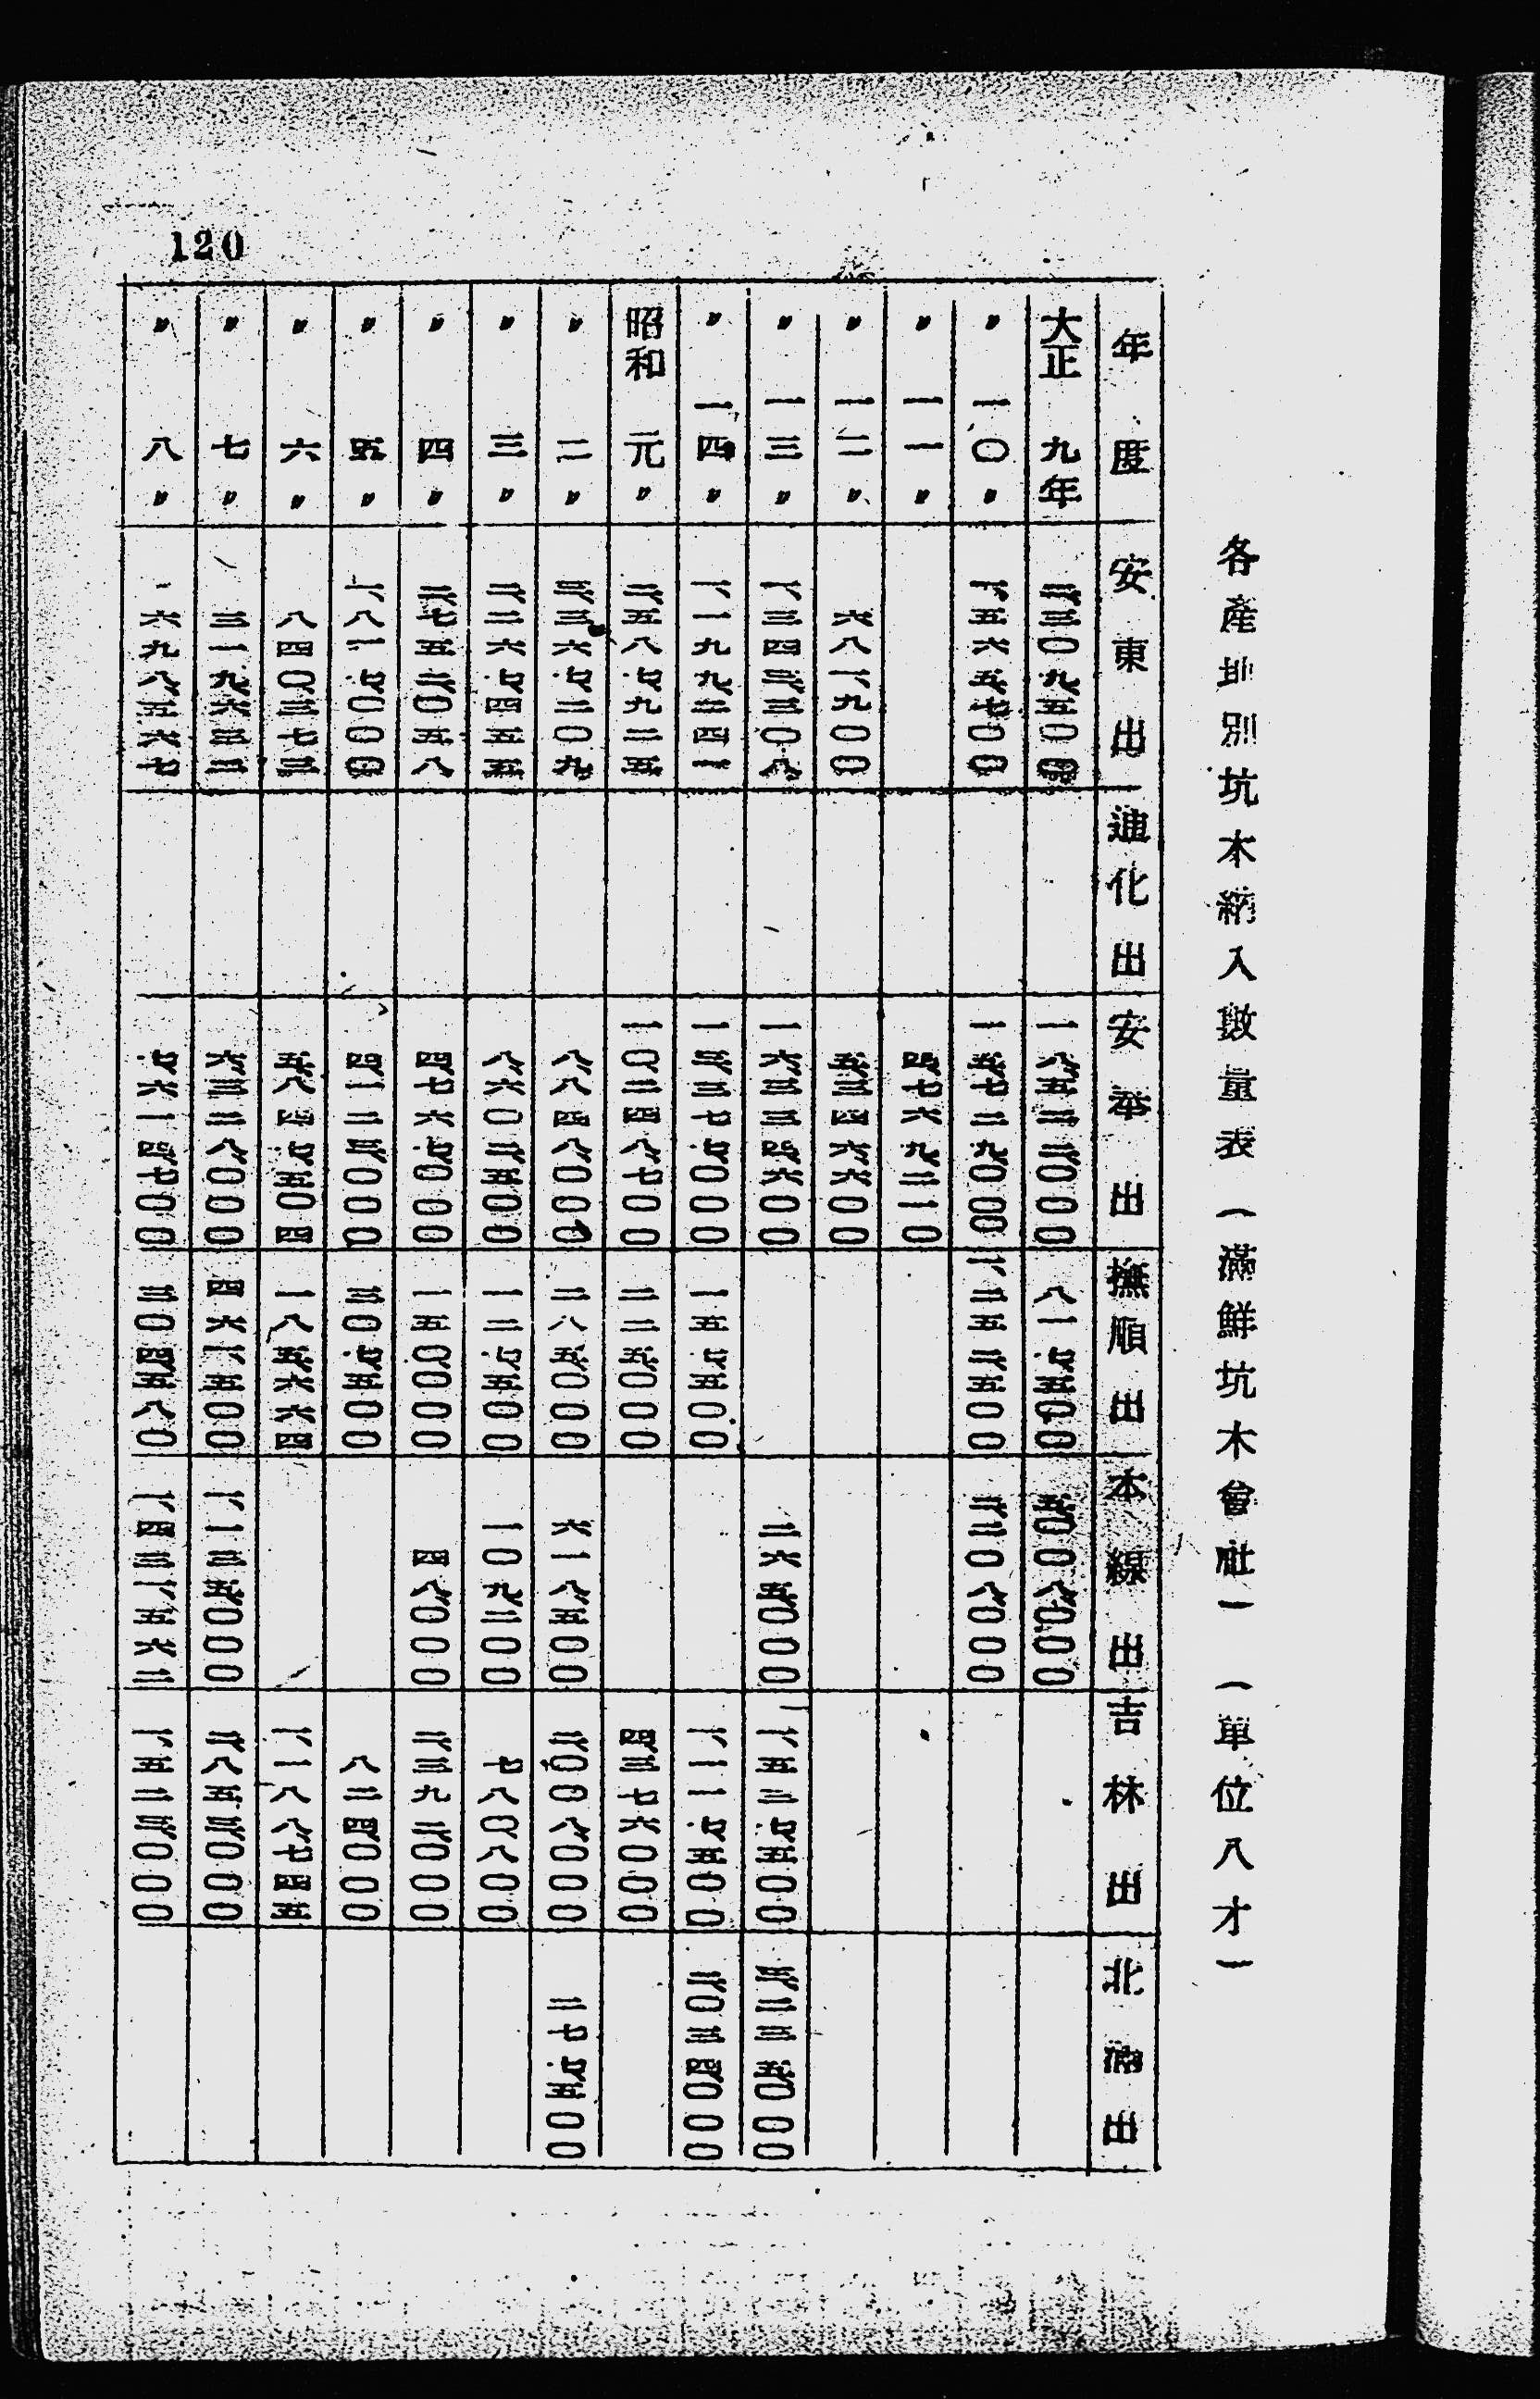 各產地別坑木納入數量表（滿鮮坑木會社）（單位八才）
年度 安東出 通化出 安奉出 撫順出 本線出 吉林出 北滿出
大正九年 二、三〇九、五〇〇 一八、五二二、〇〇〇 八一七、五〇〇 五、〇〇八、〇〇〇
〃一〇〃 一、五六五、七〇〇 一五、七二九、〇〇〇 一、二五二、五〇〇 二、二〇八、〇〇〇
〃一一〃 四、七六九、二一〇
〃一二〃 六八一、九〇〇 五、三四六、六〇〇
〃一三〃 一、三四三、三〇八 一六、三三四、六〇〇 二六五、〇〇〇 一、五二七、五〇〇 三、二三五、〇〇〇
〃一四〃 一、一九九、二四一 一三、三七七、〇〇〇 一五七、五〇〇 一、二一七、五〇〇 二、〇三四、〇〇〇
昭和元〃 二、五八七、九二五 一〇、二四八、七〇〇 二二五、〇〇〇 四、三七六、〇〇〇
〃二〃 三、三六七、二〇九 八、八四八、〇〇〇 二八五、〇〇〇 六一八、五〇〇 二、〇〇八、〇〇〇 二七七、五〇〇
〃三〃 二、二六七、四五五 八、六〇二、五〇〇 一二七、五〇〇 一〇九、二〇〇 七八〇、八〇〇
〃四〃 二、七五二、〇五八 四、七六七、〇〇〇 一五〇、〇〇〇 四八、〇〇〇 二、三九二、〇〇〇
〃五〃 一、八一七、〇〇〇 四、一二三、〇〇〇 三〇七、五〇〇 八二四、〇〇〇
〃六〃 八四〇、三七三 五、八四七、五〇四 一八五、六六四 一、一八八、七四五
〃七〃 三一九、六三二 六、三二八、〇〇〇 四六一、五〇〇 一、一三五、〇〇〇 二、八五三、〇〇〇
〃八〃 六九八、五六七 七、六一四、七〇〇 三〇四、五八〇 一、四三一、五六二 一、五二三、〇〇〇
120